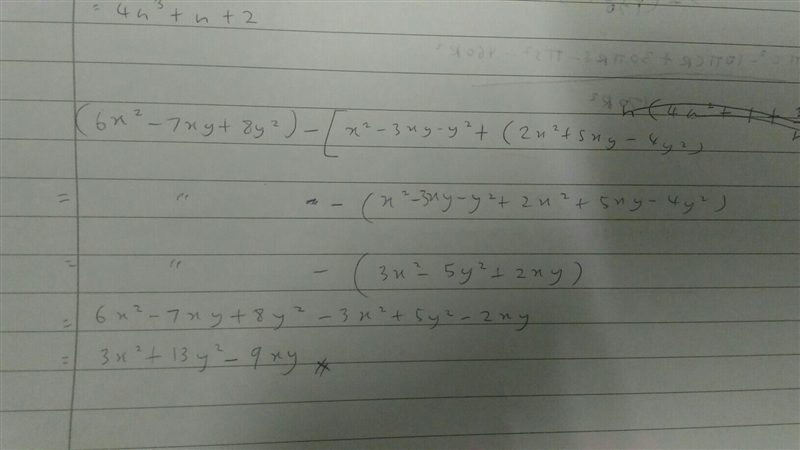 = 4n³ + n + 2
(6x² - 7xy + 8y²) - [x² - 3xy - y² + (2x² + 5xy - 4y²)
= " - (x² - 3xy - y² + 2x² + 5xy - 4y²)
= " - (3x² - 5y² + 2xy)
= 6x² - 7xy + 8y² - 3x² + 5y² - 2xy
= 3x² + 13y² - 9xy